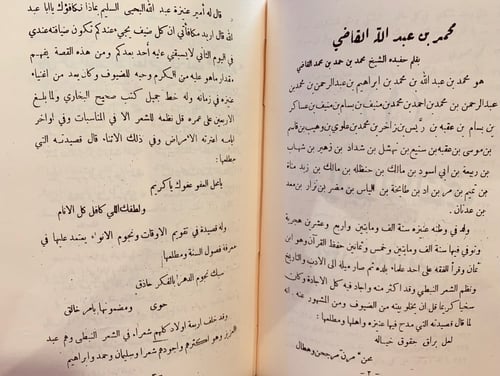 محمد بن عبد الله القاضي
بقلم حفيده الشيخ محمد بن حمد بن محمد القاضي
هو محمد بن عبدالله بن محمد بن ابراهيم بن عبدالرحمن بن محمد بن
عبدالرحمن بن محمد بن احمد بن محمد بن منيف بن بسام بن منيف بن عساكر
بن بسام بن عقبه بن ريس بن زاخر بن محمد بن علوي بن وهيب بن قاسم
بن موسى بن عقبه بن سنيع بن نهشل بن شداد بن زهير بن شهاب
بن ربيعة بن ابي اسود بن مالك بن حنظله بن مالك بن زيد مناة
بن تميم بن مر بن اد بن طابخة بن الياس بن مضر بن نزار بن معد
بن عدنان .
ولد في وطنه عنيزه سنة الف ومايتين واربع وعشرين هجرية
وتوفي فيها سنة الف ومايتين وخمس وثمانين حفظ القرآن وهو ابن
ثمان وقرأ الفقه على احد علماء بلده ثم صار ميله الى الادب والتاريخ
ونظم الشعر النبطي وقد اكثر منه واجاد فيه كل الاجادة وكان
سخيا كريما قل ان يخلو بيته من الضيوف ومن المشهود عنه انه
لما قال قصيدته التي مدح فيها عنيزه واهلها ومطلعها :
لعل براق حقوق خياله
من مرجحن وهطال
- ٢ -
قال له أمير عنيزة عبد الله اليحيى السليم عاذا نكافؤك يابا عبد
الله قال اريد مكافأتي ان كل ضيف يجي عندكم تكون ضيافته عندي
في اليوم الثاني لايسبقني عليه أحد بعدكم ومن هذه القصة يفهم
مقدار ماهو عليه من الكرم وحبه للضيوف وكان يعد من اغنياء
عنيزه في زمانه وله خط جميل كتب صحيح البخاري ولما بلغ
الاربعين على عمره قل نظمه للشعر الا في المناسبات وفي اواخر
ايامه اعترته الامراض وفي ذلك الاثناء قال قصيدته التي
مطلعها :
يا محل العفو عفوك يا كريم
ولطفك اللي كافل كل الانام
وله قصيدة في تقويم الاوقات ونجوم الانواء يعتمد عليها في
معرفة فصول السنة ومطلعها
سبك نجوم الدهر بالفكر حاذق
حوى ومضمونها بامر خالق
وقد خلف اربعة اولاد كلهم شعراء في الشعر النبطي وهم عبد
العزيز وهو اكثرهم واجودهم شعرا وسليمان وحمد وابراهيم
- ٣ -